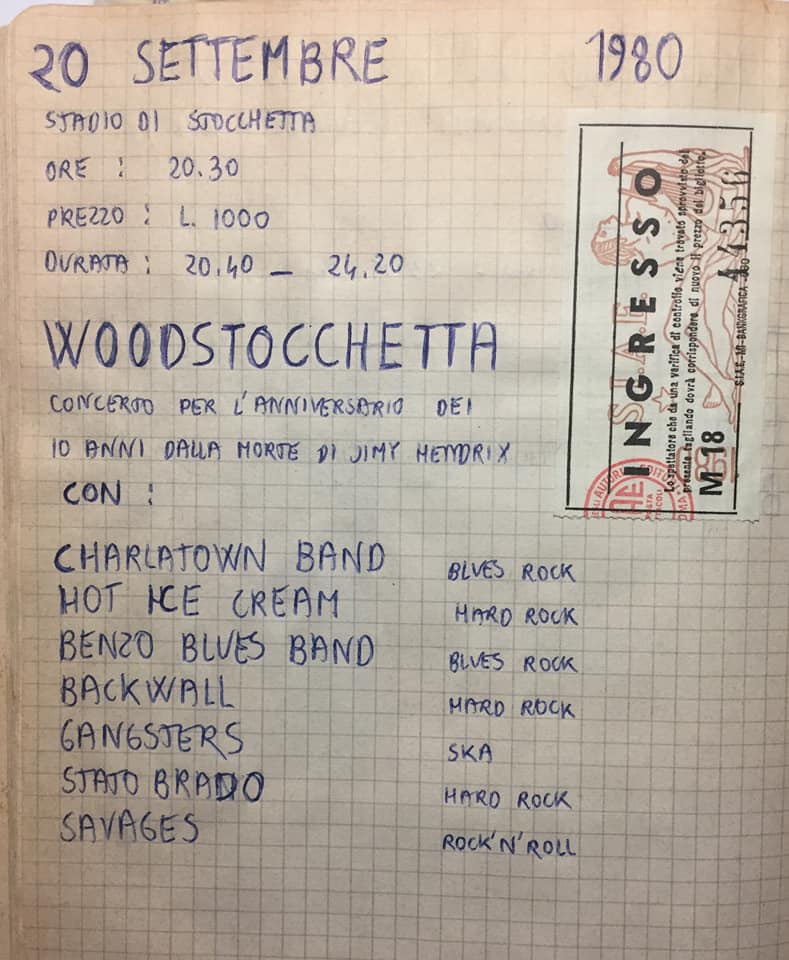 20 SETTEMBRE 1980
STADIO DI STOCCHETTA
ORE : 20.30
PREZZO : L. 1000
DURATA : 20.40 — 24.20
WOODSTOCCHETTA
CONCERTO PER L'ANNIVERSARIO DEI
10 ANNI DALLA MORTE DI JIMY HENDRIX
CON :
CHARLATOWN BAND BLUES ROCK
HOT ICE CREAM HARD ROCK
BENZO BLUES BAND BLUES ROCK
BACKWALL HARD ROCK
GANGSTERS SKA
STATO BRADO HARD ROCK
SAVAGES ROCK'N'ROLL
INGRESSO
S.I.A.E.
Lo spettatore che da una verifica di controllo viene trovato sprovvisto del
presente tagliando dovrà corrispondere di nuovo il prezzo del biglietto.
M 18
44356
S.I.A.E. - MI - BANKGRAFICA